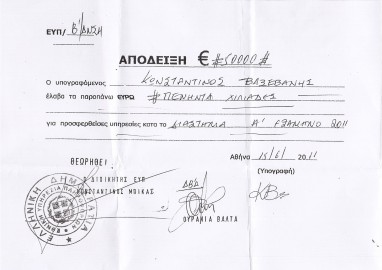 ΕΥΠ/ Β'/ΔΝΣΗ
ΑΠΟΔΕΙΞΗ € #50000#
Ο υπογραφόμενος ΚΩΝΣΤΑΝΤΙΝΟΣ ΒΑΞΕΒΑΝΗΣ
έλαβα τα παραπάνω ΕΥΡΩ #ΠΕΝΗΝΤΑ ΧΙΛΙΑΔΕΣ
για προσφερθείσες υπηρεσίες κατά το ΔΙΑΣΤΗΜΑ Α' ΕΞΑΜΗΝΟ 2011
Αθήνα 15/6/ 2011
ΘΕΩΡΗΘΕΙ
(Υπογραφή)
Ο ΔΙΟΙΚΗΤΗΣ ΕΥΠ
ΚΩΝΣΤΑΝΤΙΝΟΣ ΜΠΙΚΑΣ
ΟΥΡΑΝΙΑ ΒΑΛΤΑ
ΕΛΛΗΝΙΚΗ ΔΗΜΟΚΡΑΤΙΑ